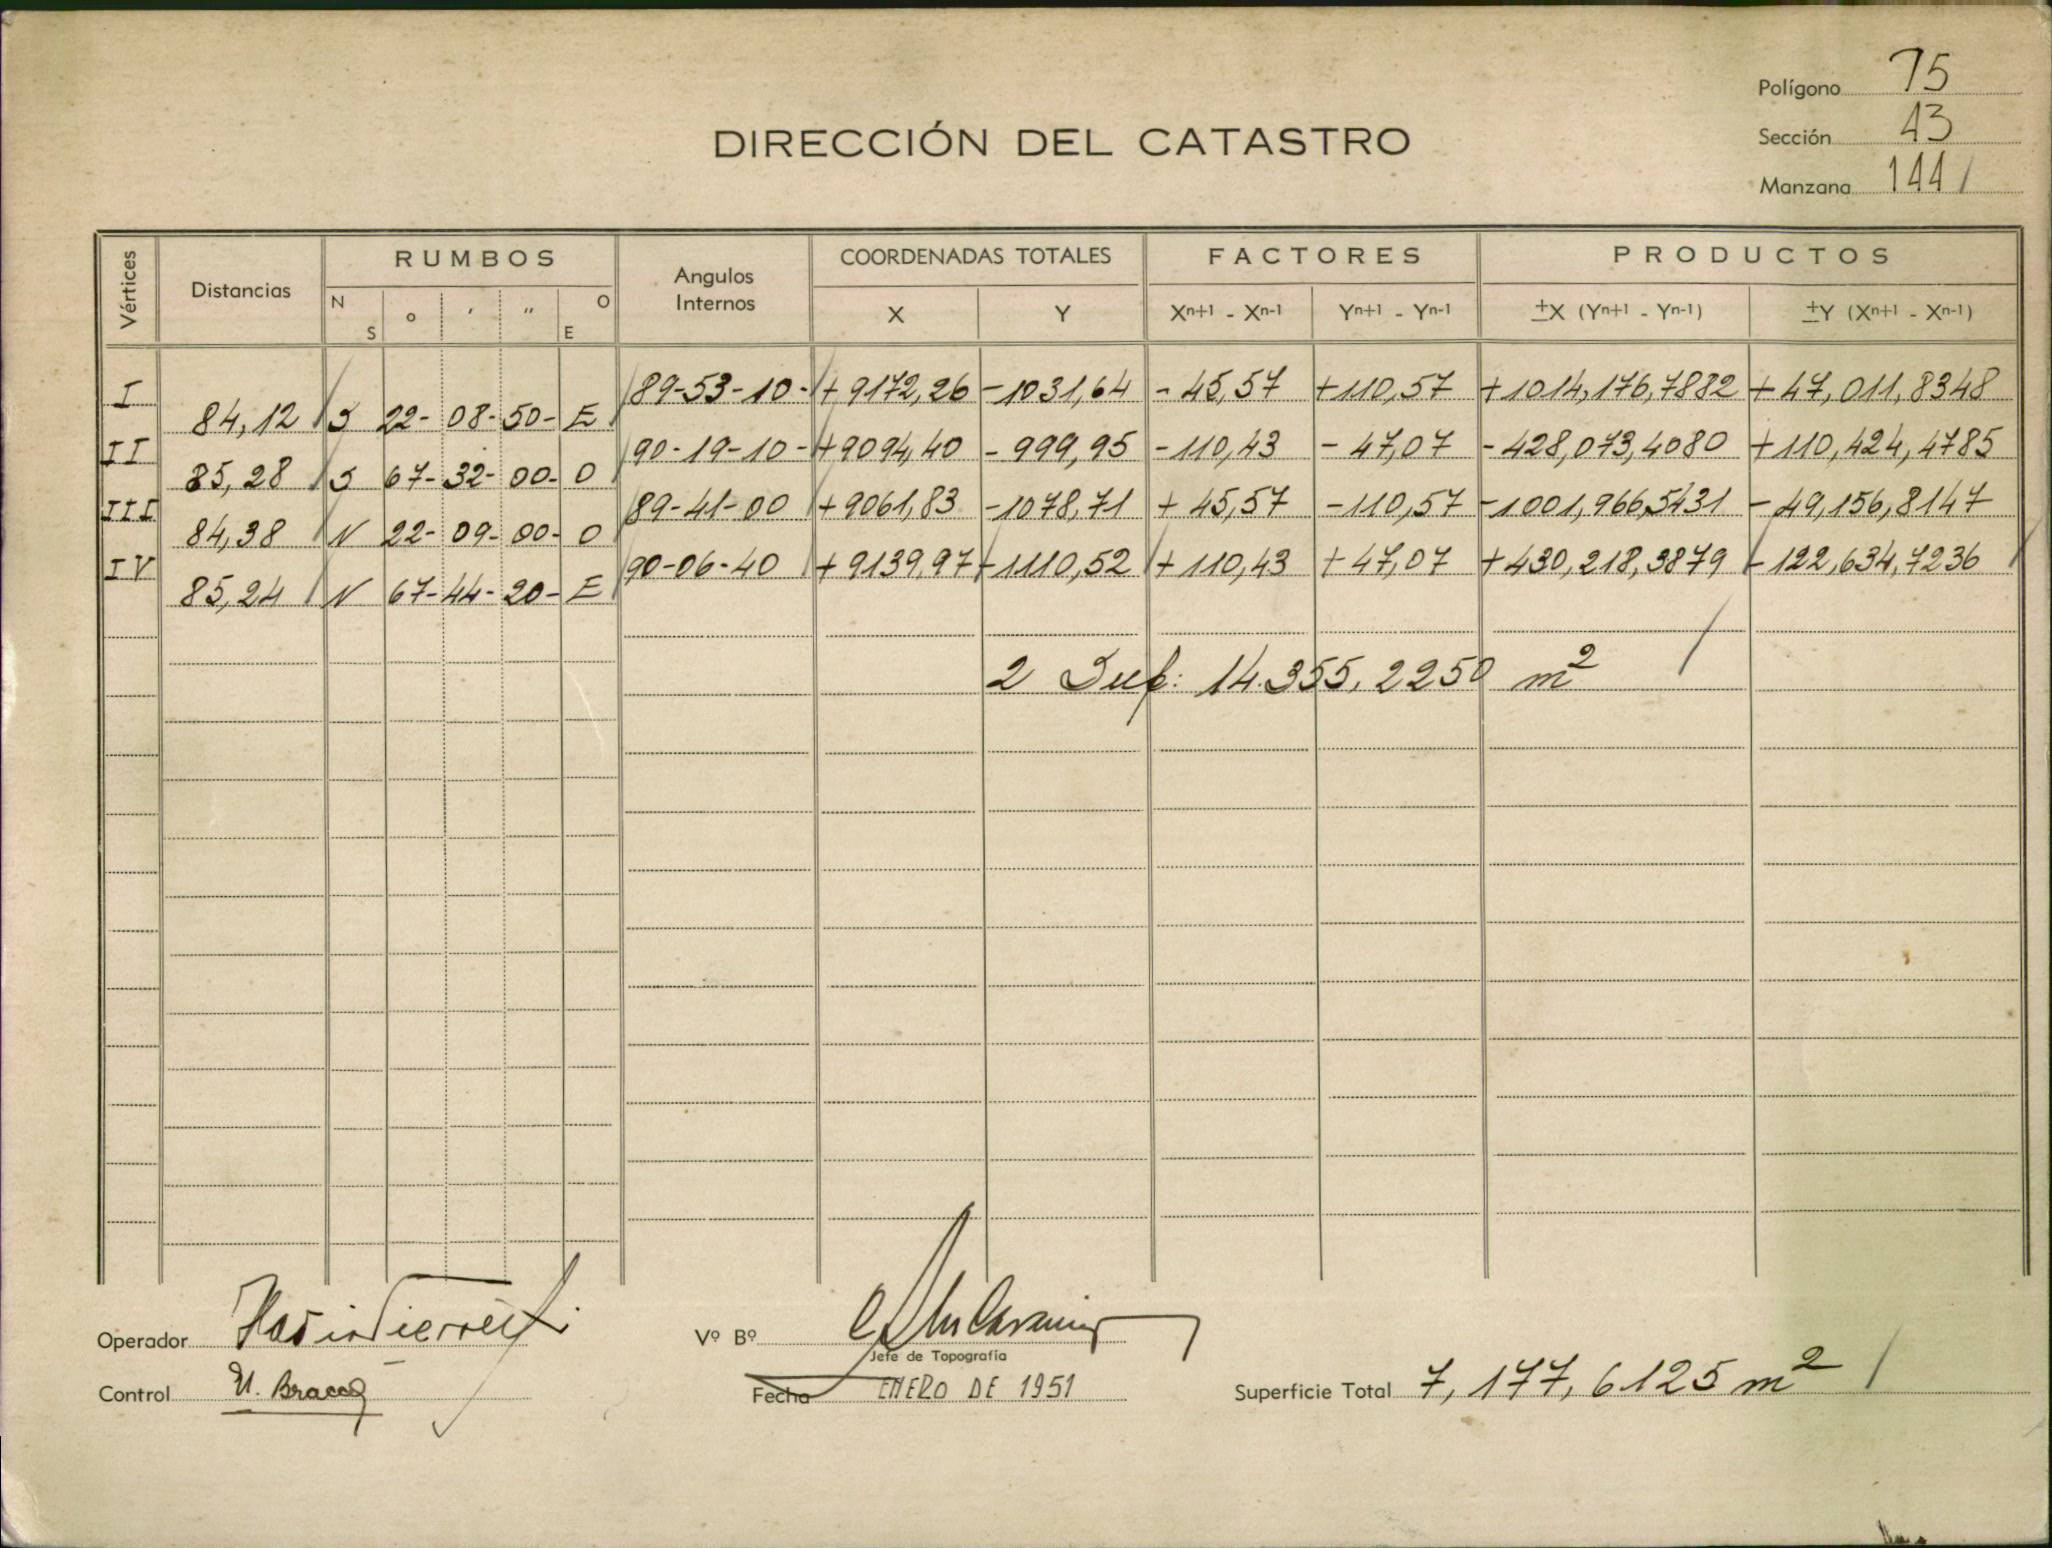 Polígono 75
DIRECCIÓN DEL CATASTRO
Sección 43
Manzana 144 /
Vértices Distancias RUMBOS Angulos Internos COORDENADAS TOTALES FACTORES PRODUCTOS
N S o ′ ″ O E X Y Xn+1 - Xn-1 Yn+1 - Yn-1 ±X (Yn+1 - Yn-1) ±Y (Xn+1 - Xn-1)
I 89-53-10- +9172,26 -1031,64 -45,57 +110,57 +1014,176,7882 +47,011,8348
84,12 S 22- 08- 50- E
II 90-19-10- +9094,40 -999,95 -110,43 -47,07 -428,073,4080 +110,424,4785
85,28 S 67- 32- 00- O
III 89-41-00 +9061,83 -1078,71 +45,57 -110,57 -1001,966,5431 -49,156,8147
84,38 N 22- 09- 00- O
IV 90-06-40 +9139,97 -1110,52 +110,43 +47,07 +430,218,3879 -122,634,7236
85,24 N 67- 44- 20- E
2 Sup: 14.355,2250 m²
Operador
Vº Bº
Jefe de Topografía
Control U. Bracco
Fecha ENERO DE 1951
Superficie Total 7,177,6125 m² /